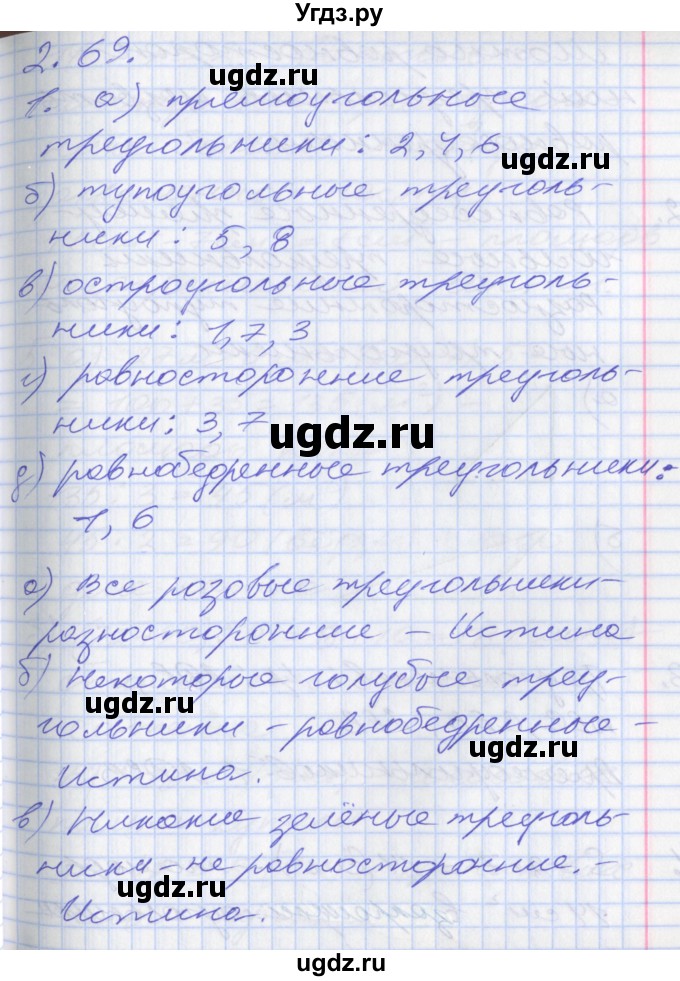 Угдз.ру
2.69.
ugdz.ru
1. а) прямоугольные
треугольники: 2, 4, 6
ugdz.ru
б) тупоуголь­ные треуголь-
ники: 5, 8
в) остроугольные треуголь-
ники: 1, 7, 3
ugdz.ru
г) равносторонние треуголь-
ники: 3, 7
ugdz.ru
д) равнобедренные треугольники:
1, 6
ugdz.ru
а) Все розовые треугольники-
разносторонние - Истина
б) Некоторые голубые треу-
ugdz.ru
гольники - равнобедренные -
ugdz.ru
Истина.
в) Никакие зелёные треуголь-
ники - не равносторонние. -
ugdz.ru
Истина.
ugdz.ru